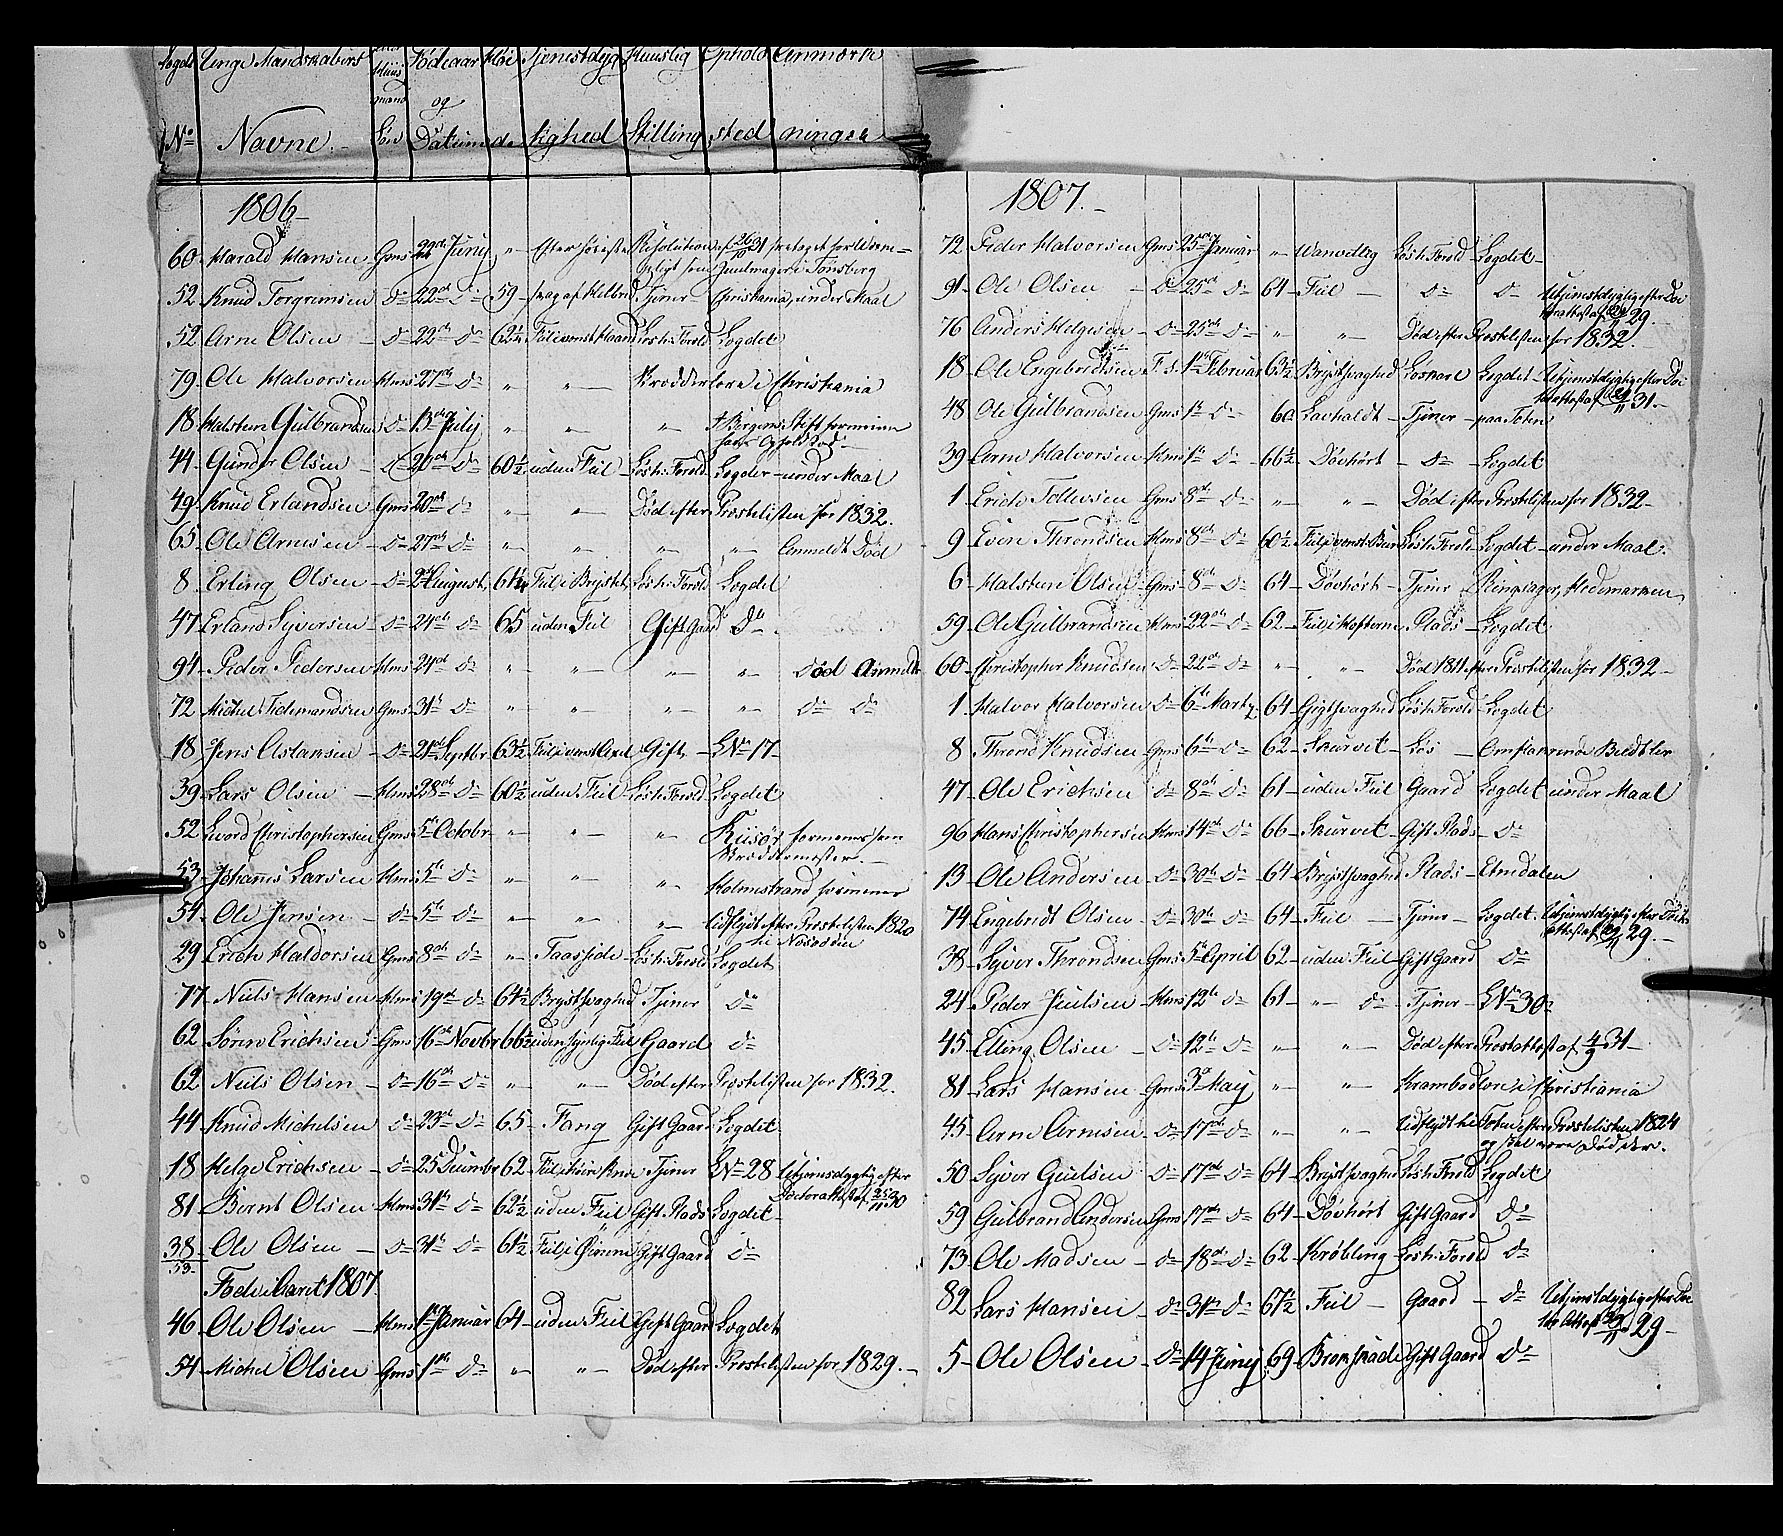 Unge Mandskabers Fødeaar Høi Tjenestdyg Huuslig Ophold Anmærk
Huus
mand og
No Navne Søn Datum de tighed Stilling sted ninger
1806
60 Harald Hansen Gms 22de Junij " Efter høieste Resolution af 26/10 31 fretaget for Udcom=
Zuulmager i Tønsberg
52 Knud Torgrimsen do 22de do 59 svag af Helbred Tjener Christiania, under Maal
52 Arne Olsen do 22de do 62½ Feil i venst. Haand Løsk. Forold. Logdet
79 Ole Halvorsen Hms 27de do " " Krodderlore i Christiania
18 Halsteen Gulbrandsen do 13de Julij " " " Bergens Stift formenen
have Ophold Sted
44 Gunder Olsen do 20de do 60½ uden Feil Løsk. Forold. Logdet under Maal
49 Knud Erlandsen Gms 20de do " " Død efter Præstelisten for 1832.
65 Ole Arnesen do 27de do " " " " Anmeldt Død
8 Erling Olsen do 2de August 61½ Feil i Brystet Løsk. Forold Logdet
47 Erland Syversen do 24de do 65 uden Feil Gift Gaard do
94 Peder Pedersen Hms 24de do " " " " død Anmeldt
72 Michel Tidemandsen Gms 31te do " " " " do do
18 Jens Aslaksen do 21de Septbr 63½ Feil i venst. Gift LNo 17
39 Lars Olsen Hms 28de do 60½ uden Feil Løsk. Forold Logdet
52 Christophersen Gms 5te Octobr " " " formenes som
53 Johannes Larsen Hms 5te do " " " Holmestrand formener
54 Ole Jensen do 5te do " " " Udflydt efter Præstelisten 1820
til Næsodden
29 Erich Haldorsen Gms 8de do " Løsk. Forold Logdet
77 Niels Hansen Hms 19de do 61½ Brystsvaghed Tjener do
62 Søren Erichsen Gms 16de Novbr 66½ uden synlig Feil Gaard do
62 Niels Olsen do 16de do " " Død efter Præstelisten for 1832.
44 Knud Michelsen do 23de do 65 Gift Gaard Logdet
18 Helge Erichsen do 25 Decembr 62 Feil i høire Knæ Tjener LNo 28 Utjenstdygtig efter
Doctorattest af 25/11 30
81 Bernt Olsen Hms 31te do 62½ uden Feil Gift Plads Logdet
38 Ole Olsen do 31te do 61½ Feil i Gift Gaard do
53
Fødte i Aaret 1807
46 Ole Olsen Hms 1te Januar 64 uden Feil Gift Gaard Logdet
54 Michel Olsen Gms 1te do " " Død efter Præstelisten for 1829.
1807.
72 Peder Halvorsen Gms 25de Januar " Vanvittig Løsk. Forold Logdet
91 Ole Olsen do 25de do 64 Feil do do Utjenstdygtig efter Doc
torattest af 29.
76 Anders Helgesen do 25de do " " Død efter Præstelisten for 1832.
18 Ole Engebredsen F.s. 1te Februar 63½ Brystsvaghed Logdet Utjenstdygtig efter Doc
torattest af 31.
48 Ole Gulbrandsen Gms 1te do 60 Lavhaldt Tjener paa Toten
39 Arne Halvorsen Hms 1te do 66½ Døvhørt do Logdet
1 Erich Tollevsen Gms 8de do " " Død efter Præstelisten for 1832
9 Even Throndsen Hms 8de do 60½ Feil i venst. Been Løsk. Forold Logdet under Maal.
6 Halsteen Olsen Gms 8de do 64 Døvhørt Tjener Ringsager, Hedemarken
59 Ole Gulbrandsen Hms 22de do 62 Feil i Hofterne Plads Logdet
60 Christopher Knudsen do 22de do " " Død 1811 efter Præstelisten for 1832
1 Halvor Halvorsen do 6te Martz 64 Gigtsvaghed Løsk. Forold Logdet
8 Thrond Knudsen Gms 6te do 62 Skurvet Løs Omflakkende Betler
47 Ole Erichsen do 8de do 61 uden Feil Gaard Logdet under Maal
96 Hans Christophersen Hms 14de do 66 Skurvet Gift Plads do
13 Ole Andersen do 30te do 64 Brystsvaghed Plads Etnedalen
74 Engebredt Olsen do 30te do 64 Feil Tjener Logdet Utjenstdygtig efter Doctor
attest af 29.
38 Syver Throndsen Gms 5te April 62 uden Feil Gift Gaard do
24 Peder Juulsen Hms 12te do 61 " do Tjener LNo 30
45 Elling Olsen do 12te do " " Død efter Præstattest af 4/9 31
81 Lars Hansen Gms 3de Maij " " Krambodlore i Christiania
45 Arne Arnesen do 17de do " " Udflydt til Toten efter Præstelisten 1824
og skal være død der.
50 Syver Guulsen do 17de do 64 Brystsvaghed Løsk. Forold Logdet
59 Gulbrand Andersen Gms 17de do 64 Døvhørt Gift Gaard do
73 Ole Madsen do 18de do 62 Krøbling Løsk. Forold do
82 Lars Hansen do 31te do 67½ Feil Gaard do Utjenstdygtig efter Doc
tor Attest 29
5 Ole Olsen do 14 Junij 69 Brokskade Gift Gaard do